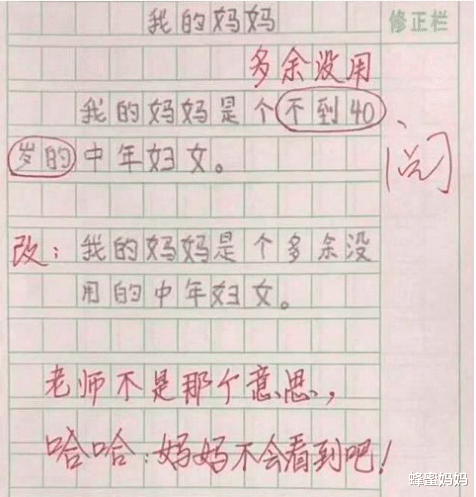 我的妈妈
修正栏
多余没用
我的妈妈是个不到40
岁的中年妇女。
阅
改：我的妈妈是个多余没
用的中年妇女。
老师不是那个意思，
哈哈：妈妈不会看到吧！
蜂蜜妈妈